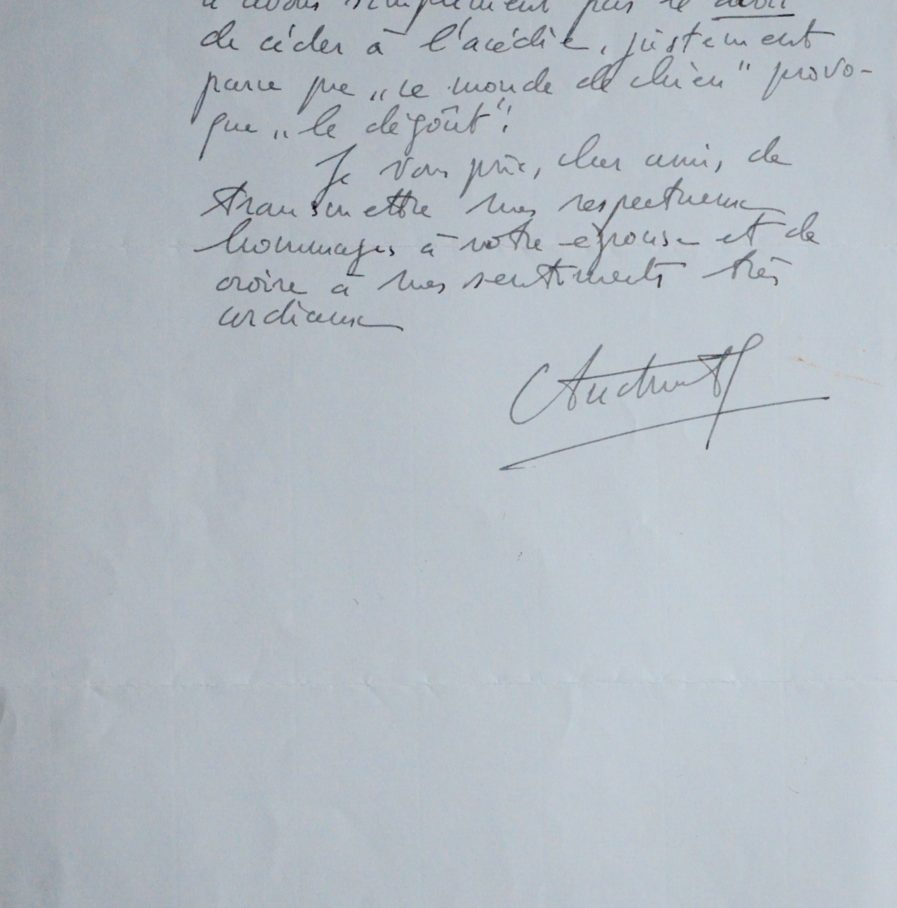 n'avons simplement pas le
de céder à l'acédie, justement
parce que „ce monde de chien" provo-
que „le dégoût"!
Je vous prie, cher ami, de
transmettre mes respectueux
hommages à votre épouse et de
croire à mes sentiments très
cordiaux